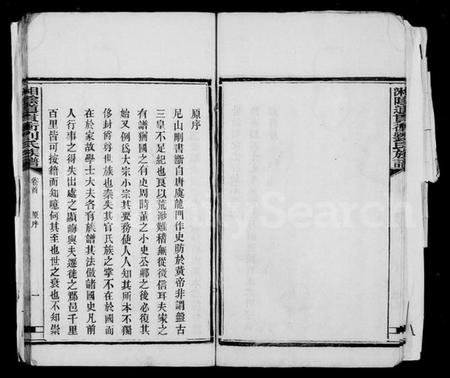 湘陰道貫衝劉氏族譜
原序
尼山刪書斷自唐虞龍門作史昉於黃帝非謂盤古
三皇不足紀也良以荒渺難稽無從徵信耳夫家之
有譜猶國之有史周時董之小史公卿之後必復其
始又例爲大宗小宗其要務使人人知其所本不獨
侈封爵尊世族也秦失其官氏族之掌不在於國而
在於家故學士大夫各有族譜其法倣諸國史凡前
人行事之得失出處之顯晦與夫遷徙之都邑千里
百里皆可按籍而知噫何其至也世之衰也不知崇
湘陰道貫衝劉氏族譜
卷首
原序
一